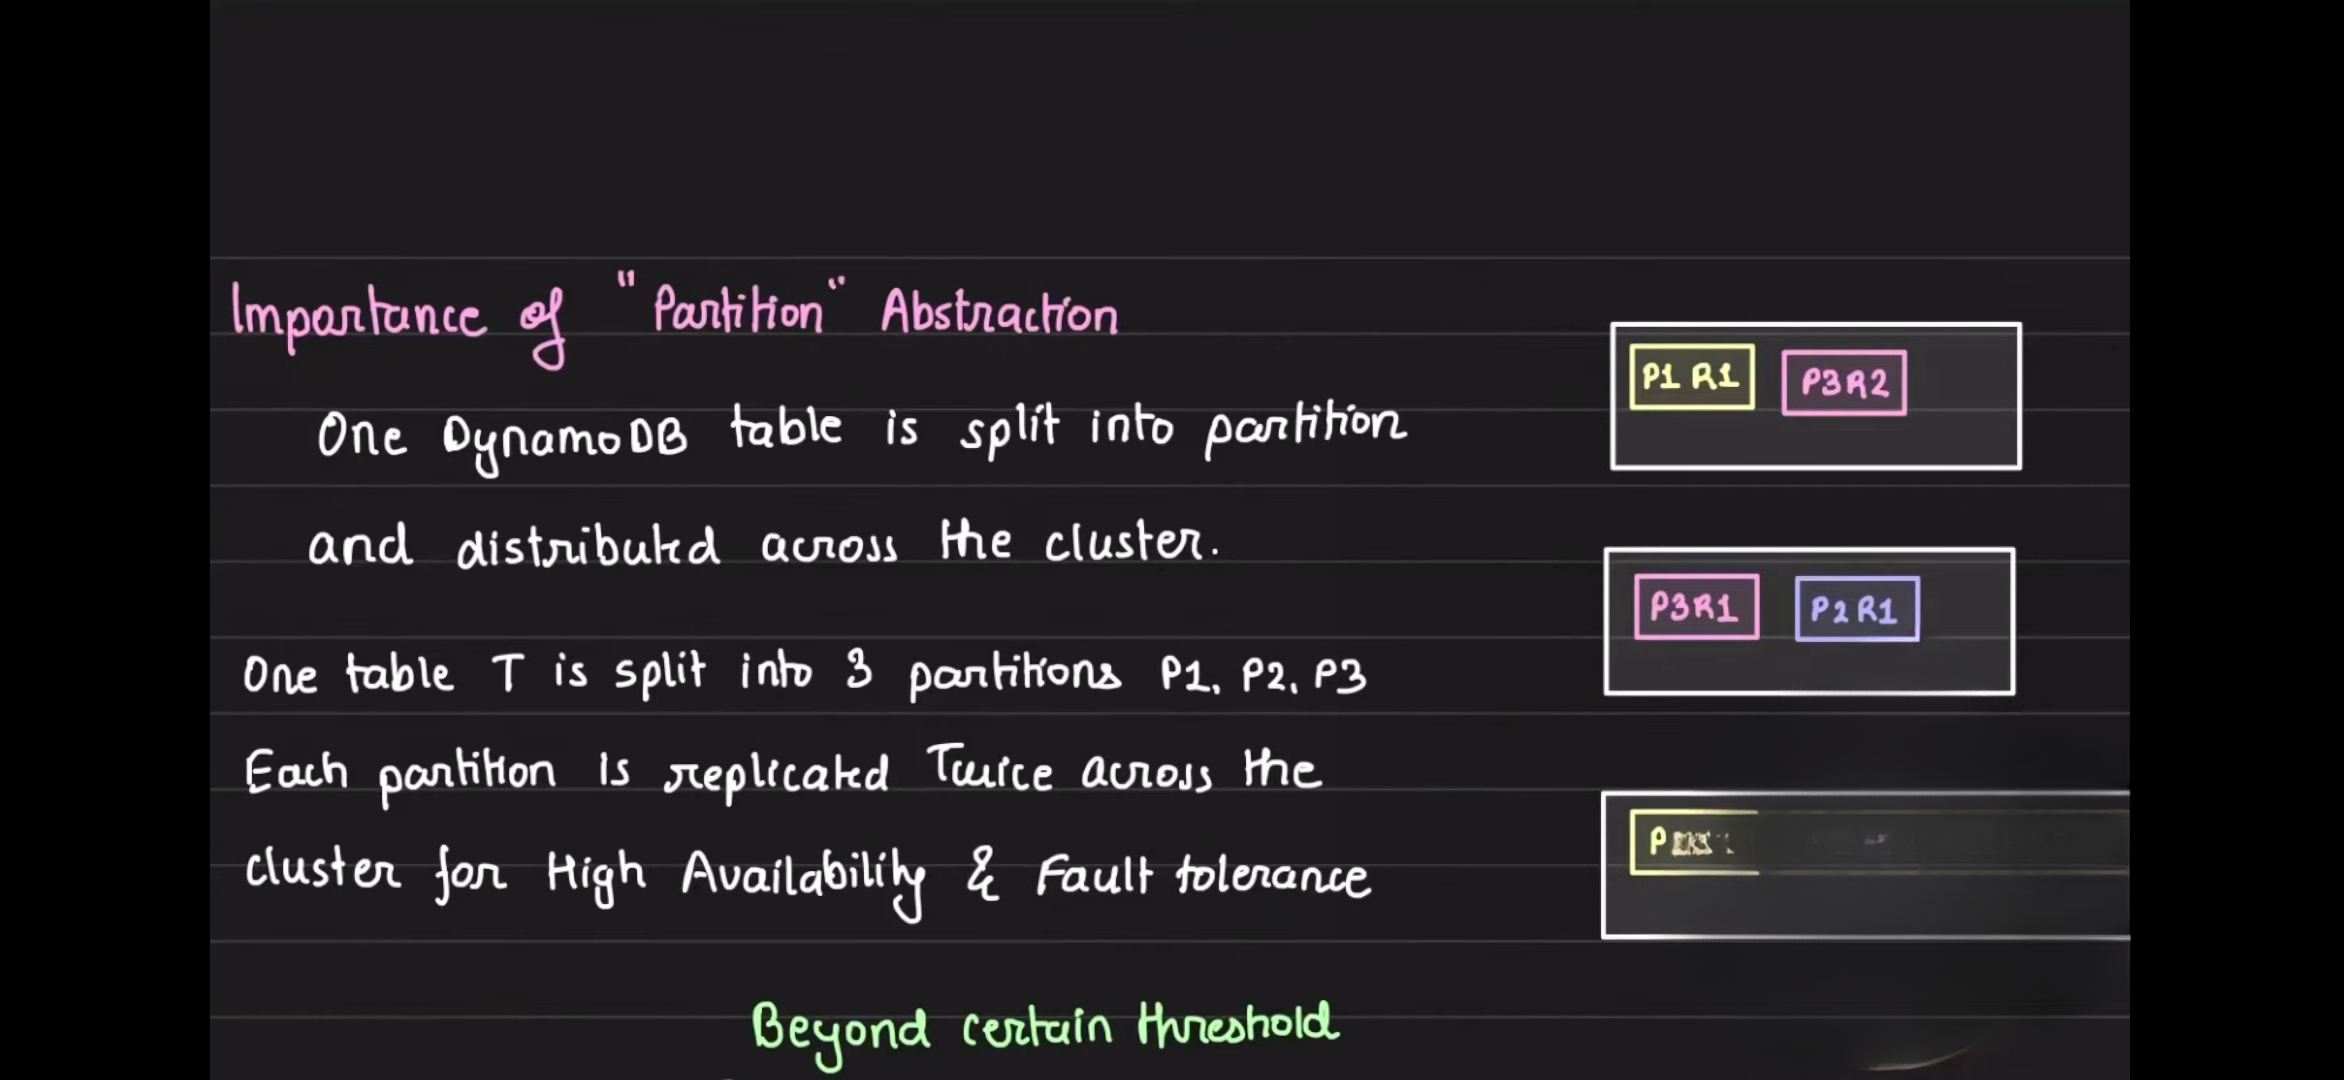 Importance of "Partition" Abstraction
One DynamoDB table is split into partition
and distributed across the cluster.
One table T is split into 3 partitions P1, P2, P3
Each partition is replicated Twice across the
cluster for High Availability & Fault tolerance
Beyond certain threshold
P1 R1 P3R2
P3R1 P2 R1
P